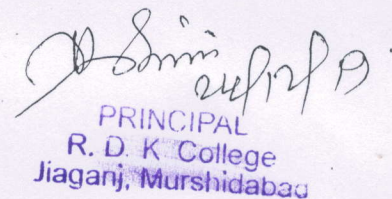 24/12/19
PRINCIPAL
R. D. K College
Jiaganj, Murshidabad